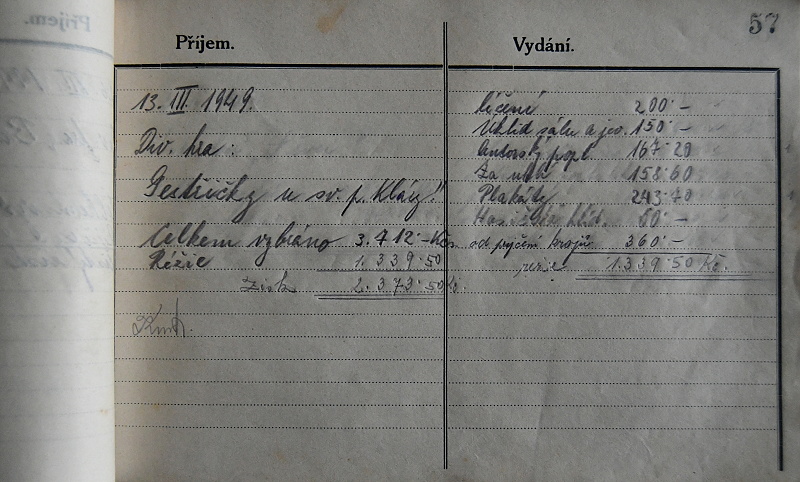 57
Příjem.
13. III. 1949.
Div. hra:
Sestřičky u sv. p. Kláry!"
Celkem vybráno 3.712·–Kčs
Režie 1.339·50
zisk 2.372·50Kč.
Vydání.
líčení 200·–
Úklid sálu a jev. 150·–
Autorský popl. 167·20
Za 158·60
Plakáty 243·70
hlíd. 60·–
od půjčen. krojů 360·–
režie 1.339·50 Kč.